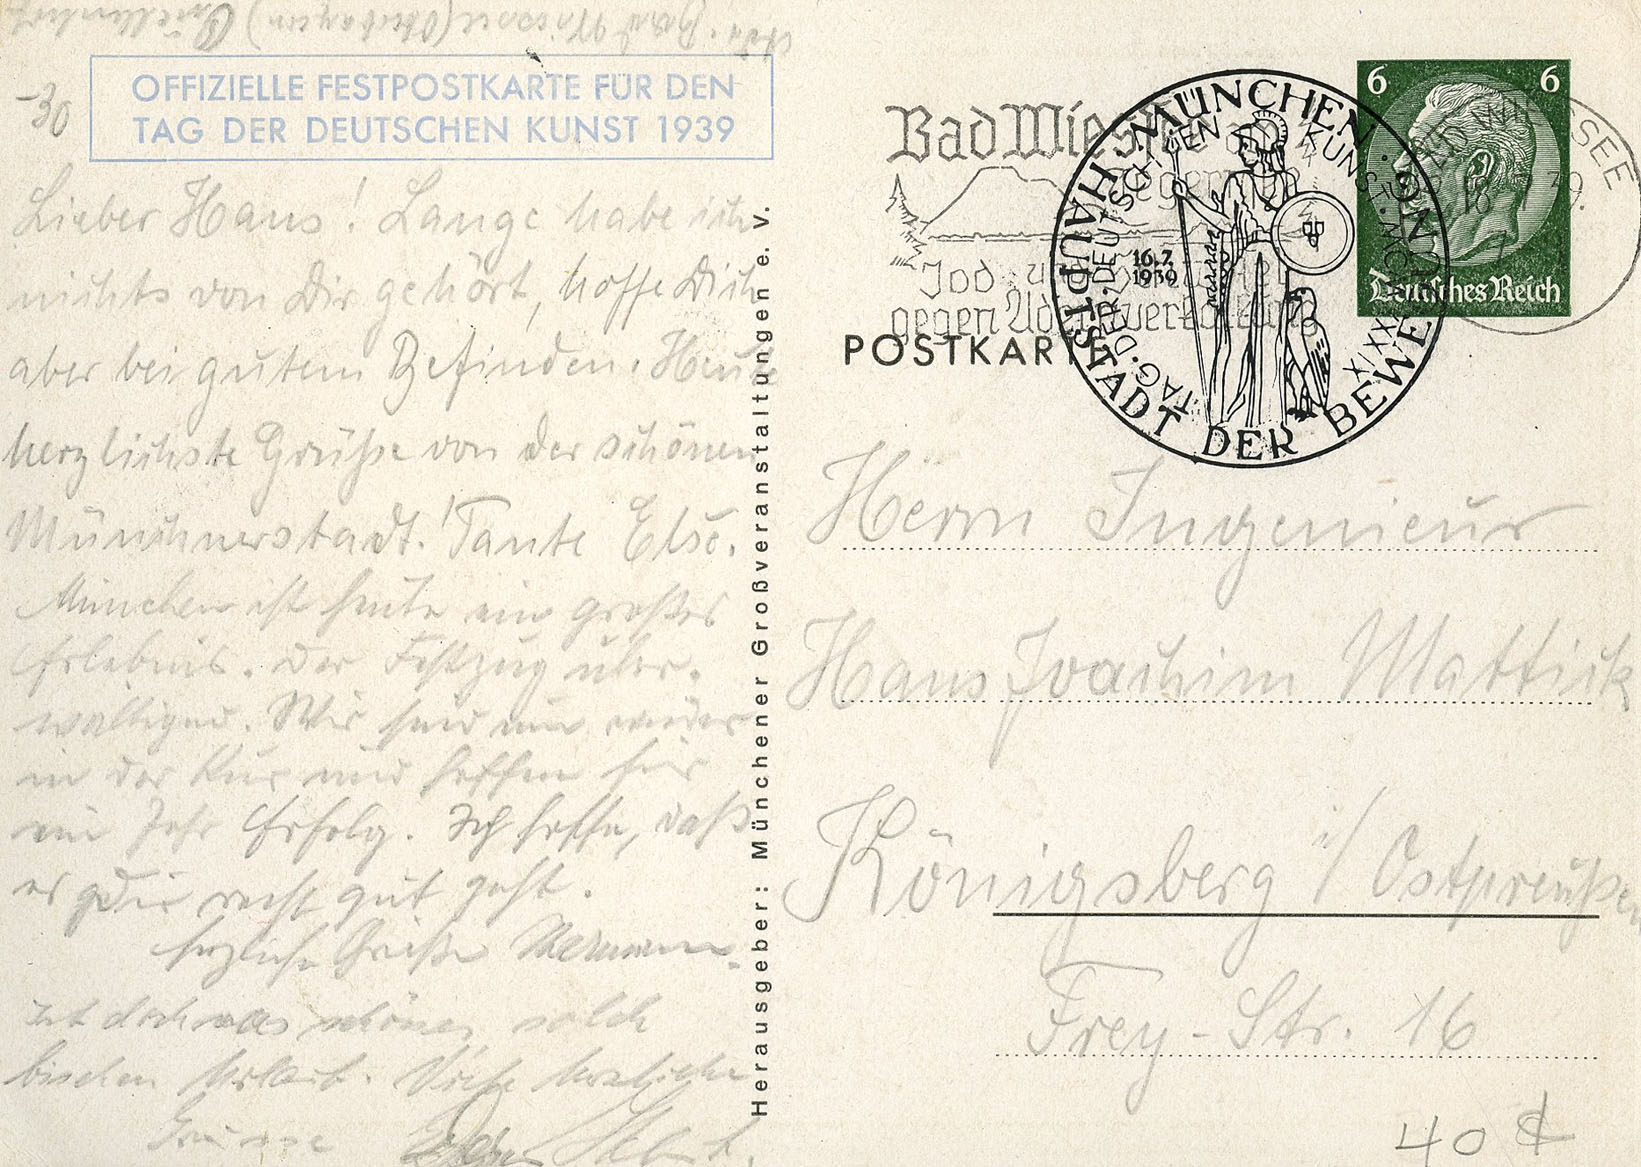 Adr. Bad Wiessee (Oberbayern)
-30
OFFIZIELLE FESTPOSTKARTE FÜR DEN
TAG DER DEUTSCHEN KUNST 1939
Lieber Hans! Lange habe ich
nichts von Dir gehört, hoffe Dich
aber bei gutem Befinden. Heute
herzlichste Grüße von der schönen
Münchnerstadt! Tante Else.
München ist heute ein großes
Erlebnis. Der Festzug über-
wältigend. Wir sind nun wieder
in der Kur und hoffen für
ein Jahr Erfolg. Ich hoffe, daß
es Dir recht gut geht.
herzliche Grüße
Ist doch was schönes solch
bischen Urlaub. Viele herzliche
Grüsse
Herausgeber: Münchener Großveranstaltungen e. V.
Bad Wiessee am
Tegernsee
Jod- und Schwefel
gegen Adernverkalkung
MÜNCHEN · HAUPTSTADT DER BEWEGUNG
TAG · DER · DEUTSCHEN KUNST · MÜNCHEN XXXIX
16.7.
1939
BAD WIESSEE
18 7 39
6 6
Deutsches Reich
POSTKARTE
Herrn Ingenieur
Hans Joachim Mattick
Königsberg i/ Ostpreußen
Frey-Str. 16
40